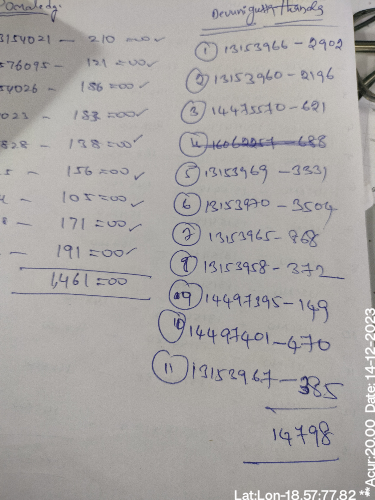 3154021 - 210 =00 ✓
576095 - 121 =00 ✓
54026 - 186 =00 ✓
023 - 183 =00 ✓
828 - 138 =00 ✓
5 - 156 =00 ✓
105 =00 ✓
8 - 171 =00 ✓
- 191 =00 ✓
1,461 =00
① 13153966 - 2902
② 13153960 - 2196
③ 14475570 - 621
④ 16062257 - 688
⑤ 13153969 - 3331
⑥ 13153970 - 3504
⑦ 13153965 - 868
⑧ 13153958 - 372
⑨ 14497395 - 149
⑩ 14497401 - 470
⑪ 13153967 - 385
14798
Lat:Lon-18.57:77.82 **Acur:20.00 Date:14-12-2023